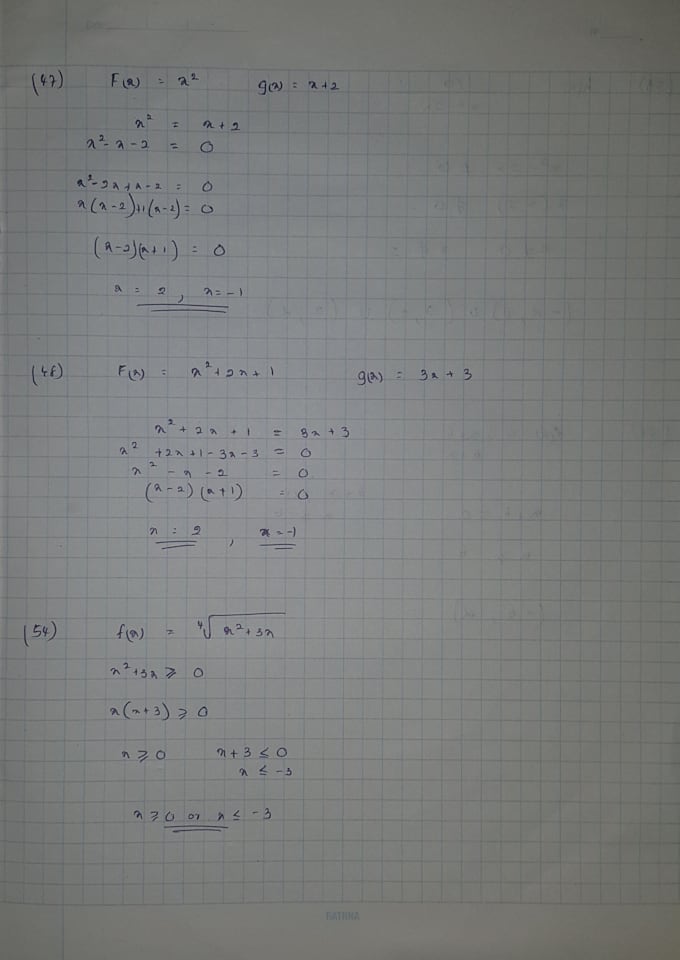 (47) F(x) = x² g(x) = x+2
x² = x+2
x²-x-2 = 0
x²-2x+x-2 = 0
x(x-2)+1(x-2) = 0
(x-2)(x+1) = 0
x = 2 , x=-1
(48) F(x) = x²+2x+1 g(x) = 3x+3
x²+2x+1 = 3x+3
x²+2x+1-3x-3 = 0
x²-x-2 = 0
(x-2)(x+1) = 0
x = 2 , x=-1
(54) f(x) = ⁴√x²+3x
x²+3x ⩾ 0
x(x+3) ⩾ 0
x ⩾ 0 x+3 ≤ 0
x ≤ -3
x ⩾ 0 or x ≤ -3
RATHNA